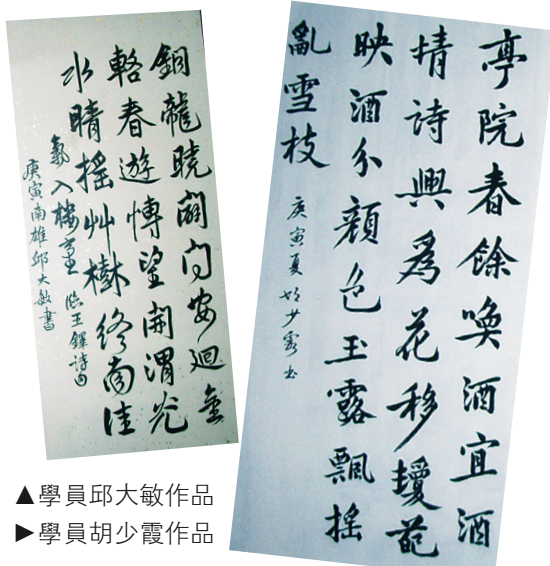 銅龍曉闢问安迴金
輅春遊博望開渭光
水晴搖艸樹終南佳
氣入樓臺 臨王鐸詩句
庚寅南雄邱大敏書
亭院春餘喚酒宜酒
情詩興爲花移瓊葩
映酒分顏色玉露飄搖
亂雪枝 庚寅夏 胡少霞书
▲學員邱大敏作品
▶學員胡少霞作品